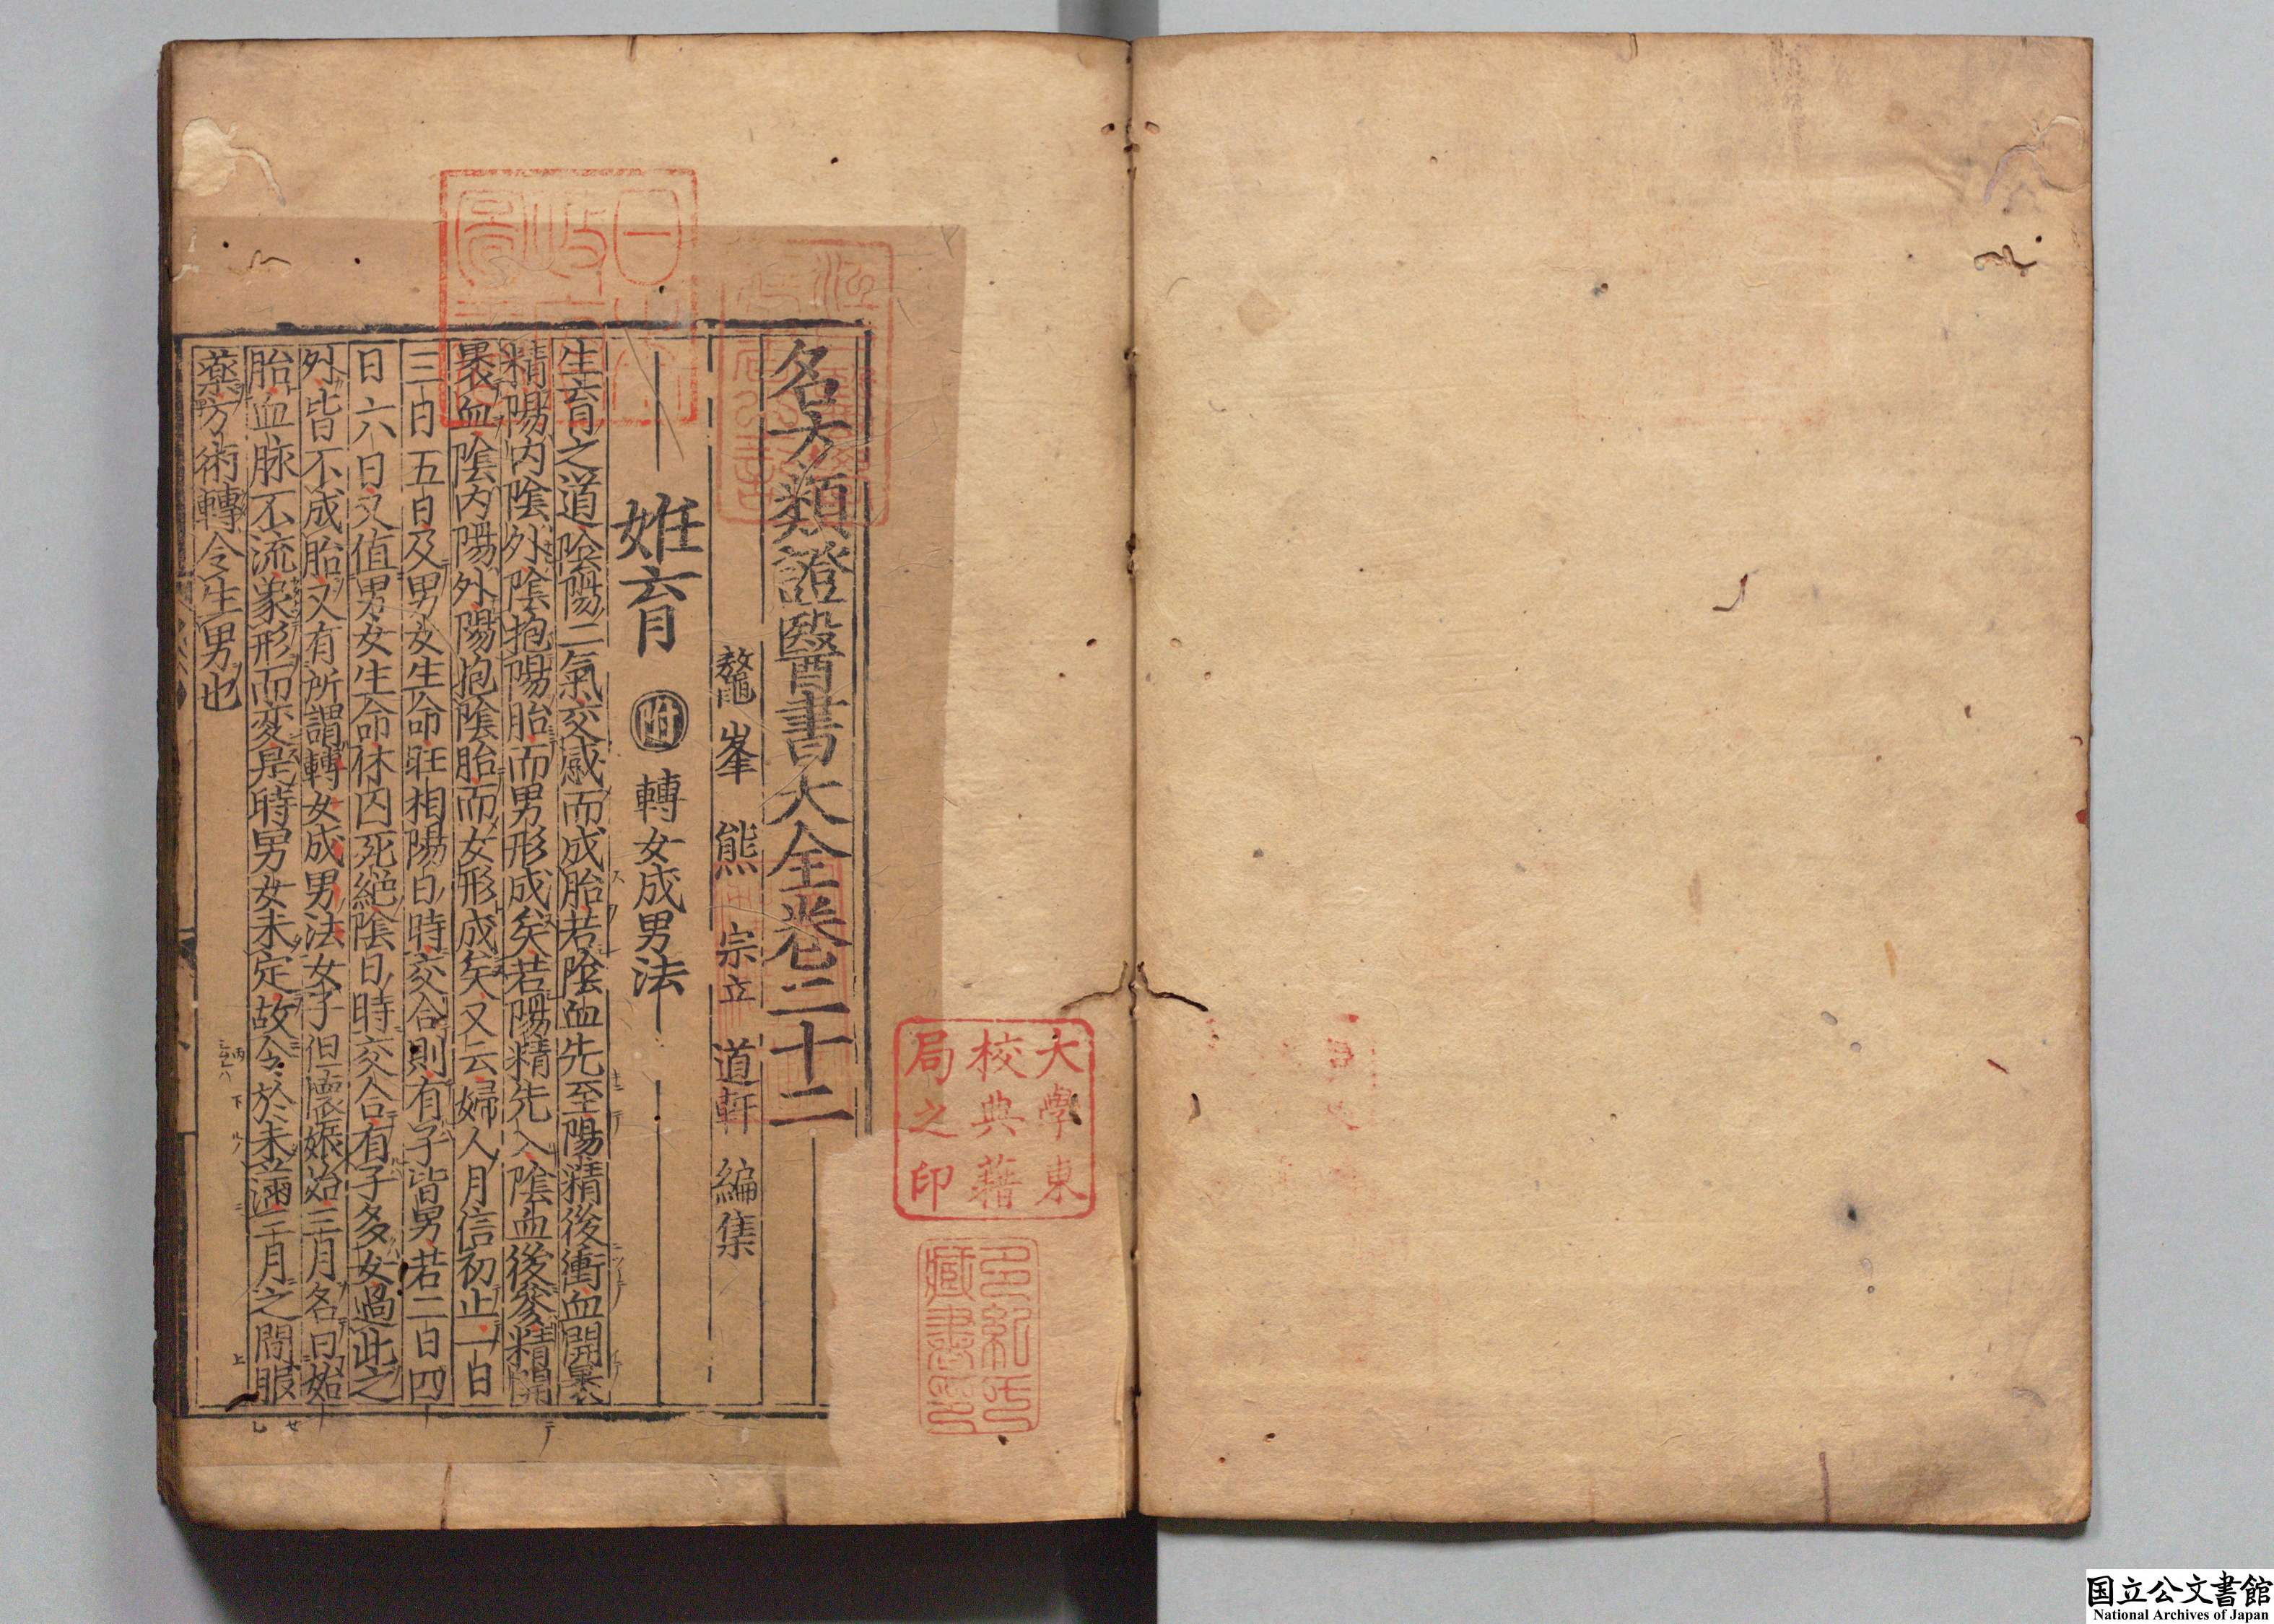 名方類證醫書大全卷二十二
鼇峯 熊 宗立 道軒 編集
姙育 附 轉女成男法
生育之道陰陽二氣交感而成胎若陰血先至陽精後衝血開裹
精陽內陰外陰抱陽胎而男形成矣若陽精先入陰血後參精開
裹血陰內陽外陽抱陰胎而女形成矣又云婦人月信初止一日
三日五日及男女生命旺相陽日時交合則有子皆男若二日四
日六日又值男女生命休囚死絕陰日時交合有子多女過此之
外皆不成胎又有所謂轉女成男法女子但懷娠始三月名曰始
胎血脉不流象形而変是時男女未定故令於未滿三月之間服
藥方術轉令生男也
大學東
校典籍
局之印
多紀氏
藏書印
国立公文書館
National Archives of Japan